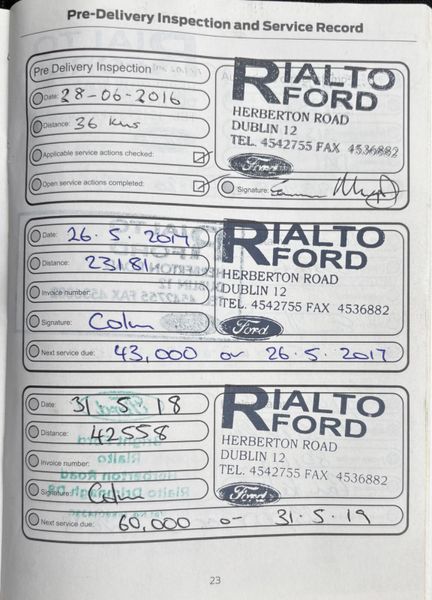 Pre-Delivery Inspection and Service Record
Pre Delivery Inspection
Date: 28-06-2016
Distance: 36 kms
Applicable service actions checked:
Open service actions completed:
RIALTO
FORD
HERBERTON ROAD
DUBLIN 12
TEL. 4542755 FAX 4536882
Ford
Signature:
Date: 26.5.2017
Distance: 23181
Invoice number:
Signature: Colm
Next service due: 43,000 or 26.5.2017
RIALTO
FORD
HERBERTON ROAD
DUBLIN 12
TEL. 4542755 FAX 4536882
Ford
Date: 31.5.18
Distance: 42558
Invoice number:
Signature: Colm
Next service due: 60,000 or 31.5.19
RIALTO
FORD
HERBERTON ROAD
DUBLIN 12
TEL. 4542755 FAX 4536882
Ford
23